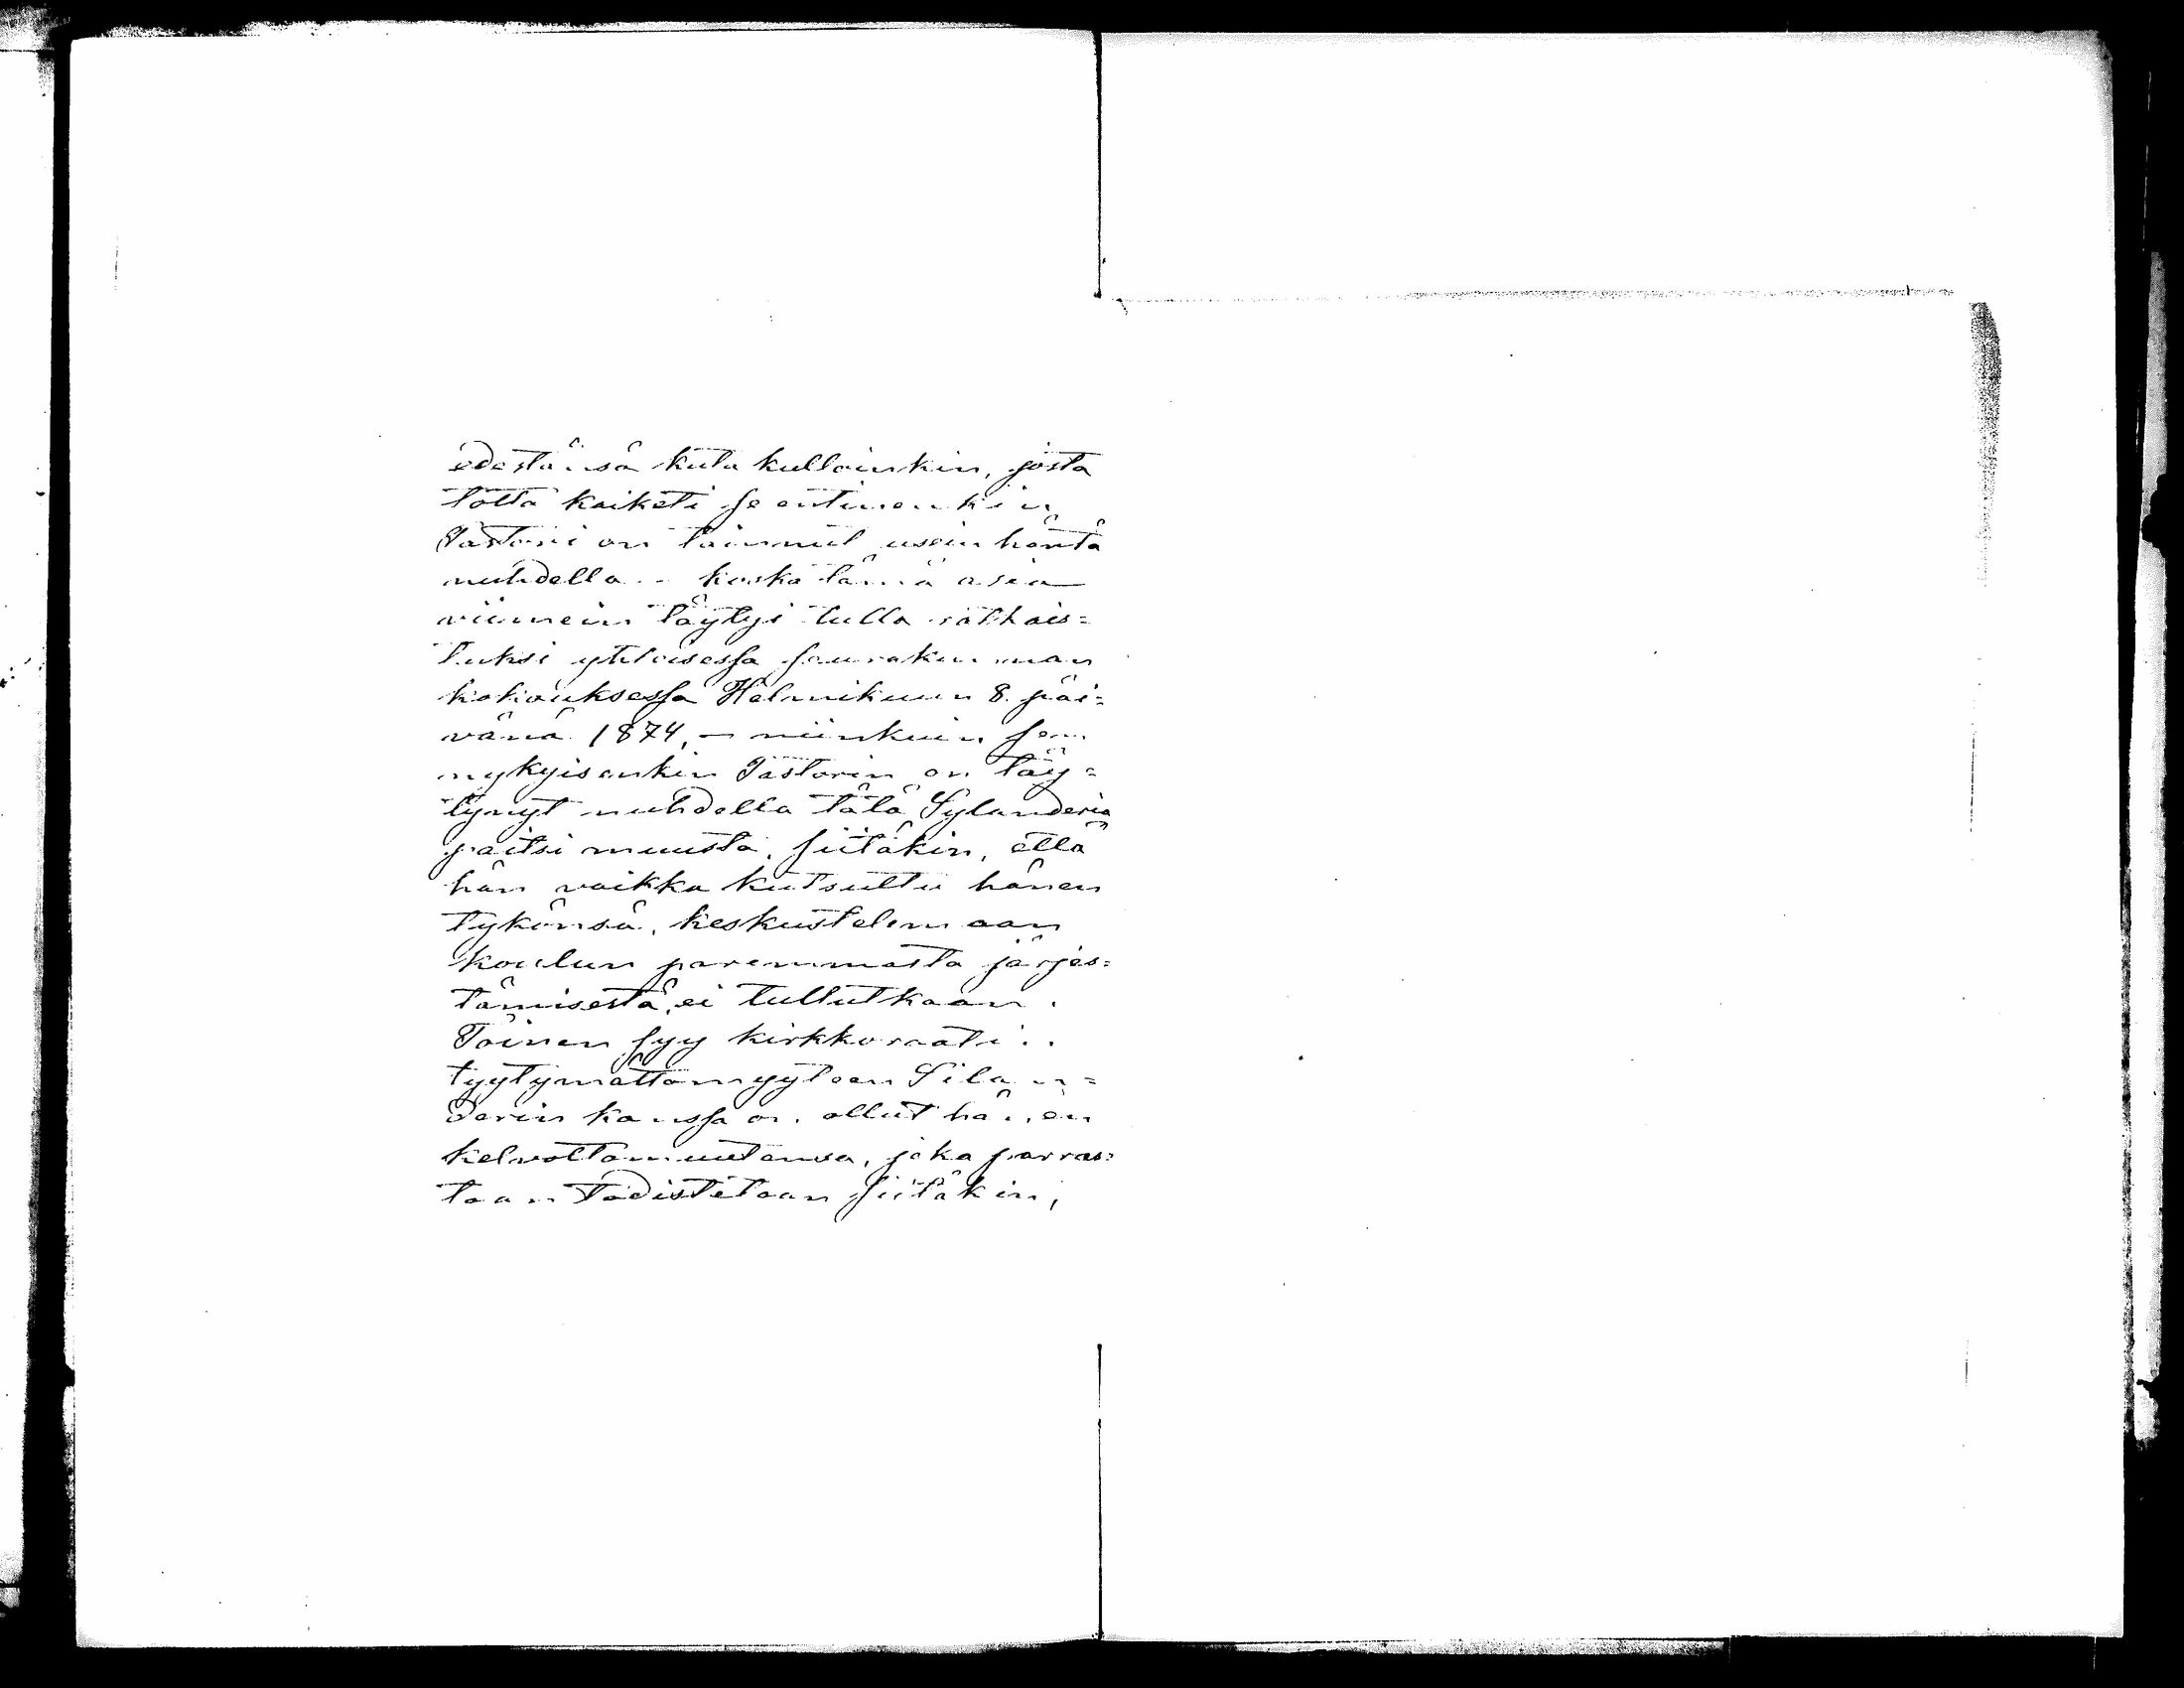 edestänsä kuta kulloinkin, josta
tottä kaiketi se entinenkin
Pastori on toinnut usein häntä
nuhdella. koska tämä asia
viimein täytyi tulla ratkais=
tuksi yhteisessä seurakunnan
kokouksessa Helmikuun 8. päi=
vänä 1874, – niinkuin sen
nykyisenkin Pastorin on täy=
tynyt nuhdella tätä Sylanderia
paitsi muusta, siitäkin, että
hän vaikka kutsuttu hänen
tykönsä, keskustelemaan
koulun paremmasta järjes=
tämisestä, ei tullutkaan.
Toinen syy kirkkoraati..
tyytymättömyyteen Silan=
derin kanssa on ollut hänen
kelvottomuutensa, joka parras=
taan todistetaan siitäkin,